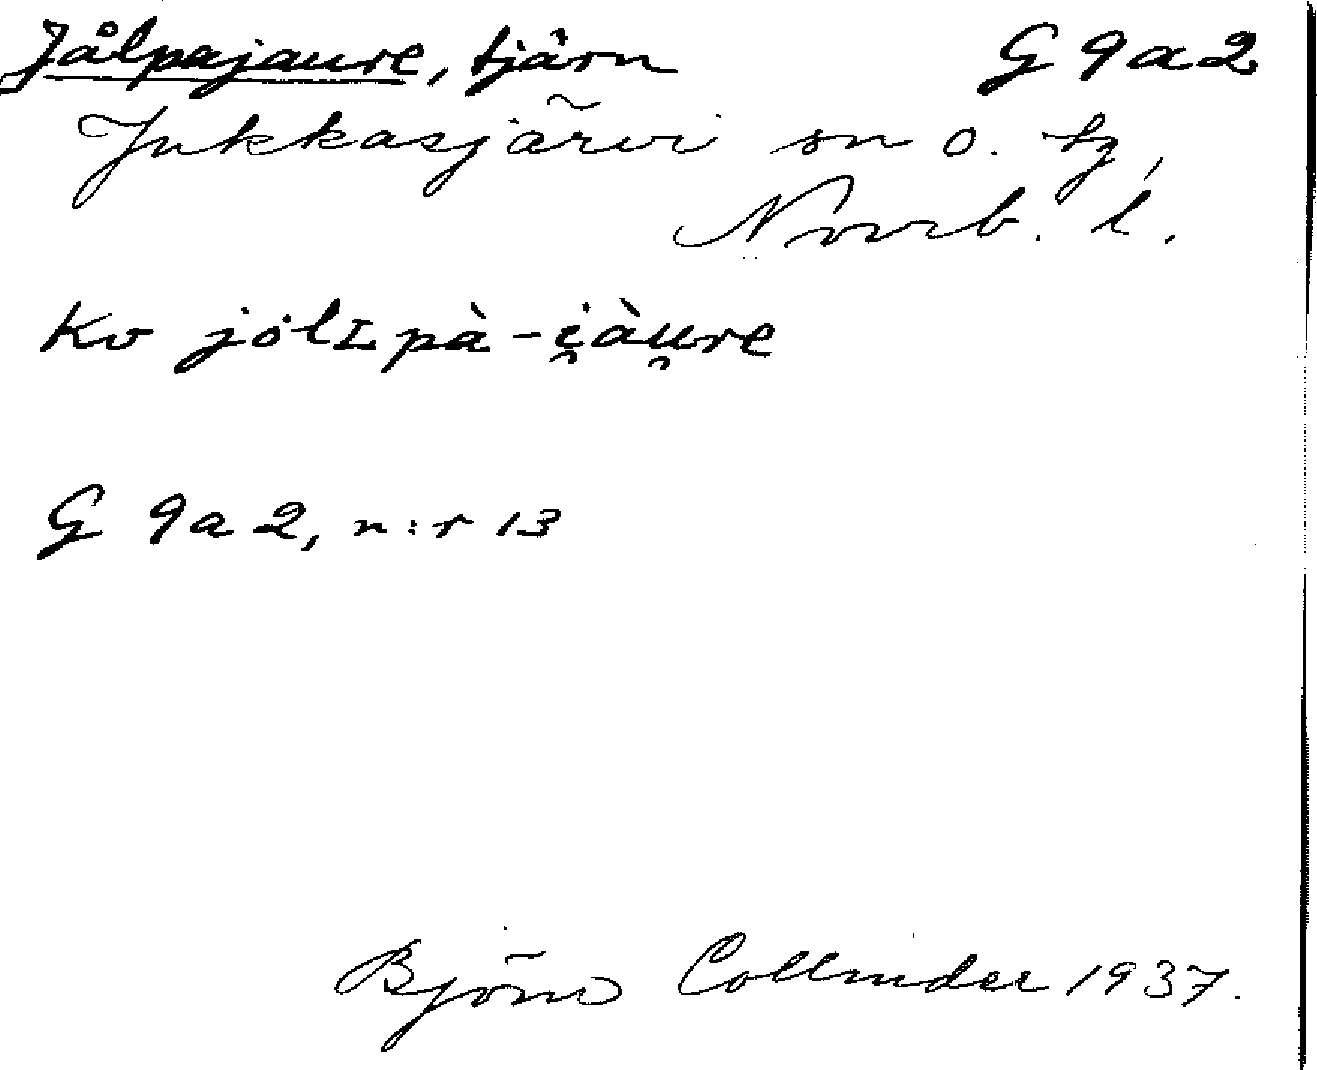 Jålpajaure, tjärn G 9a2
Jukkasjärvi sn o. tg,
Norrb. l.
Kv jȯlɪpà-i̯àu̯re
G 9a2, n:r 13
Björn Collinder 1937.